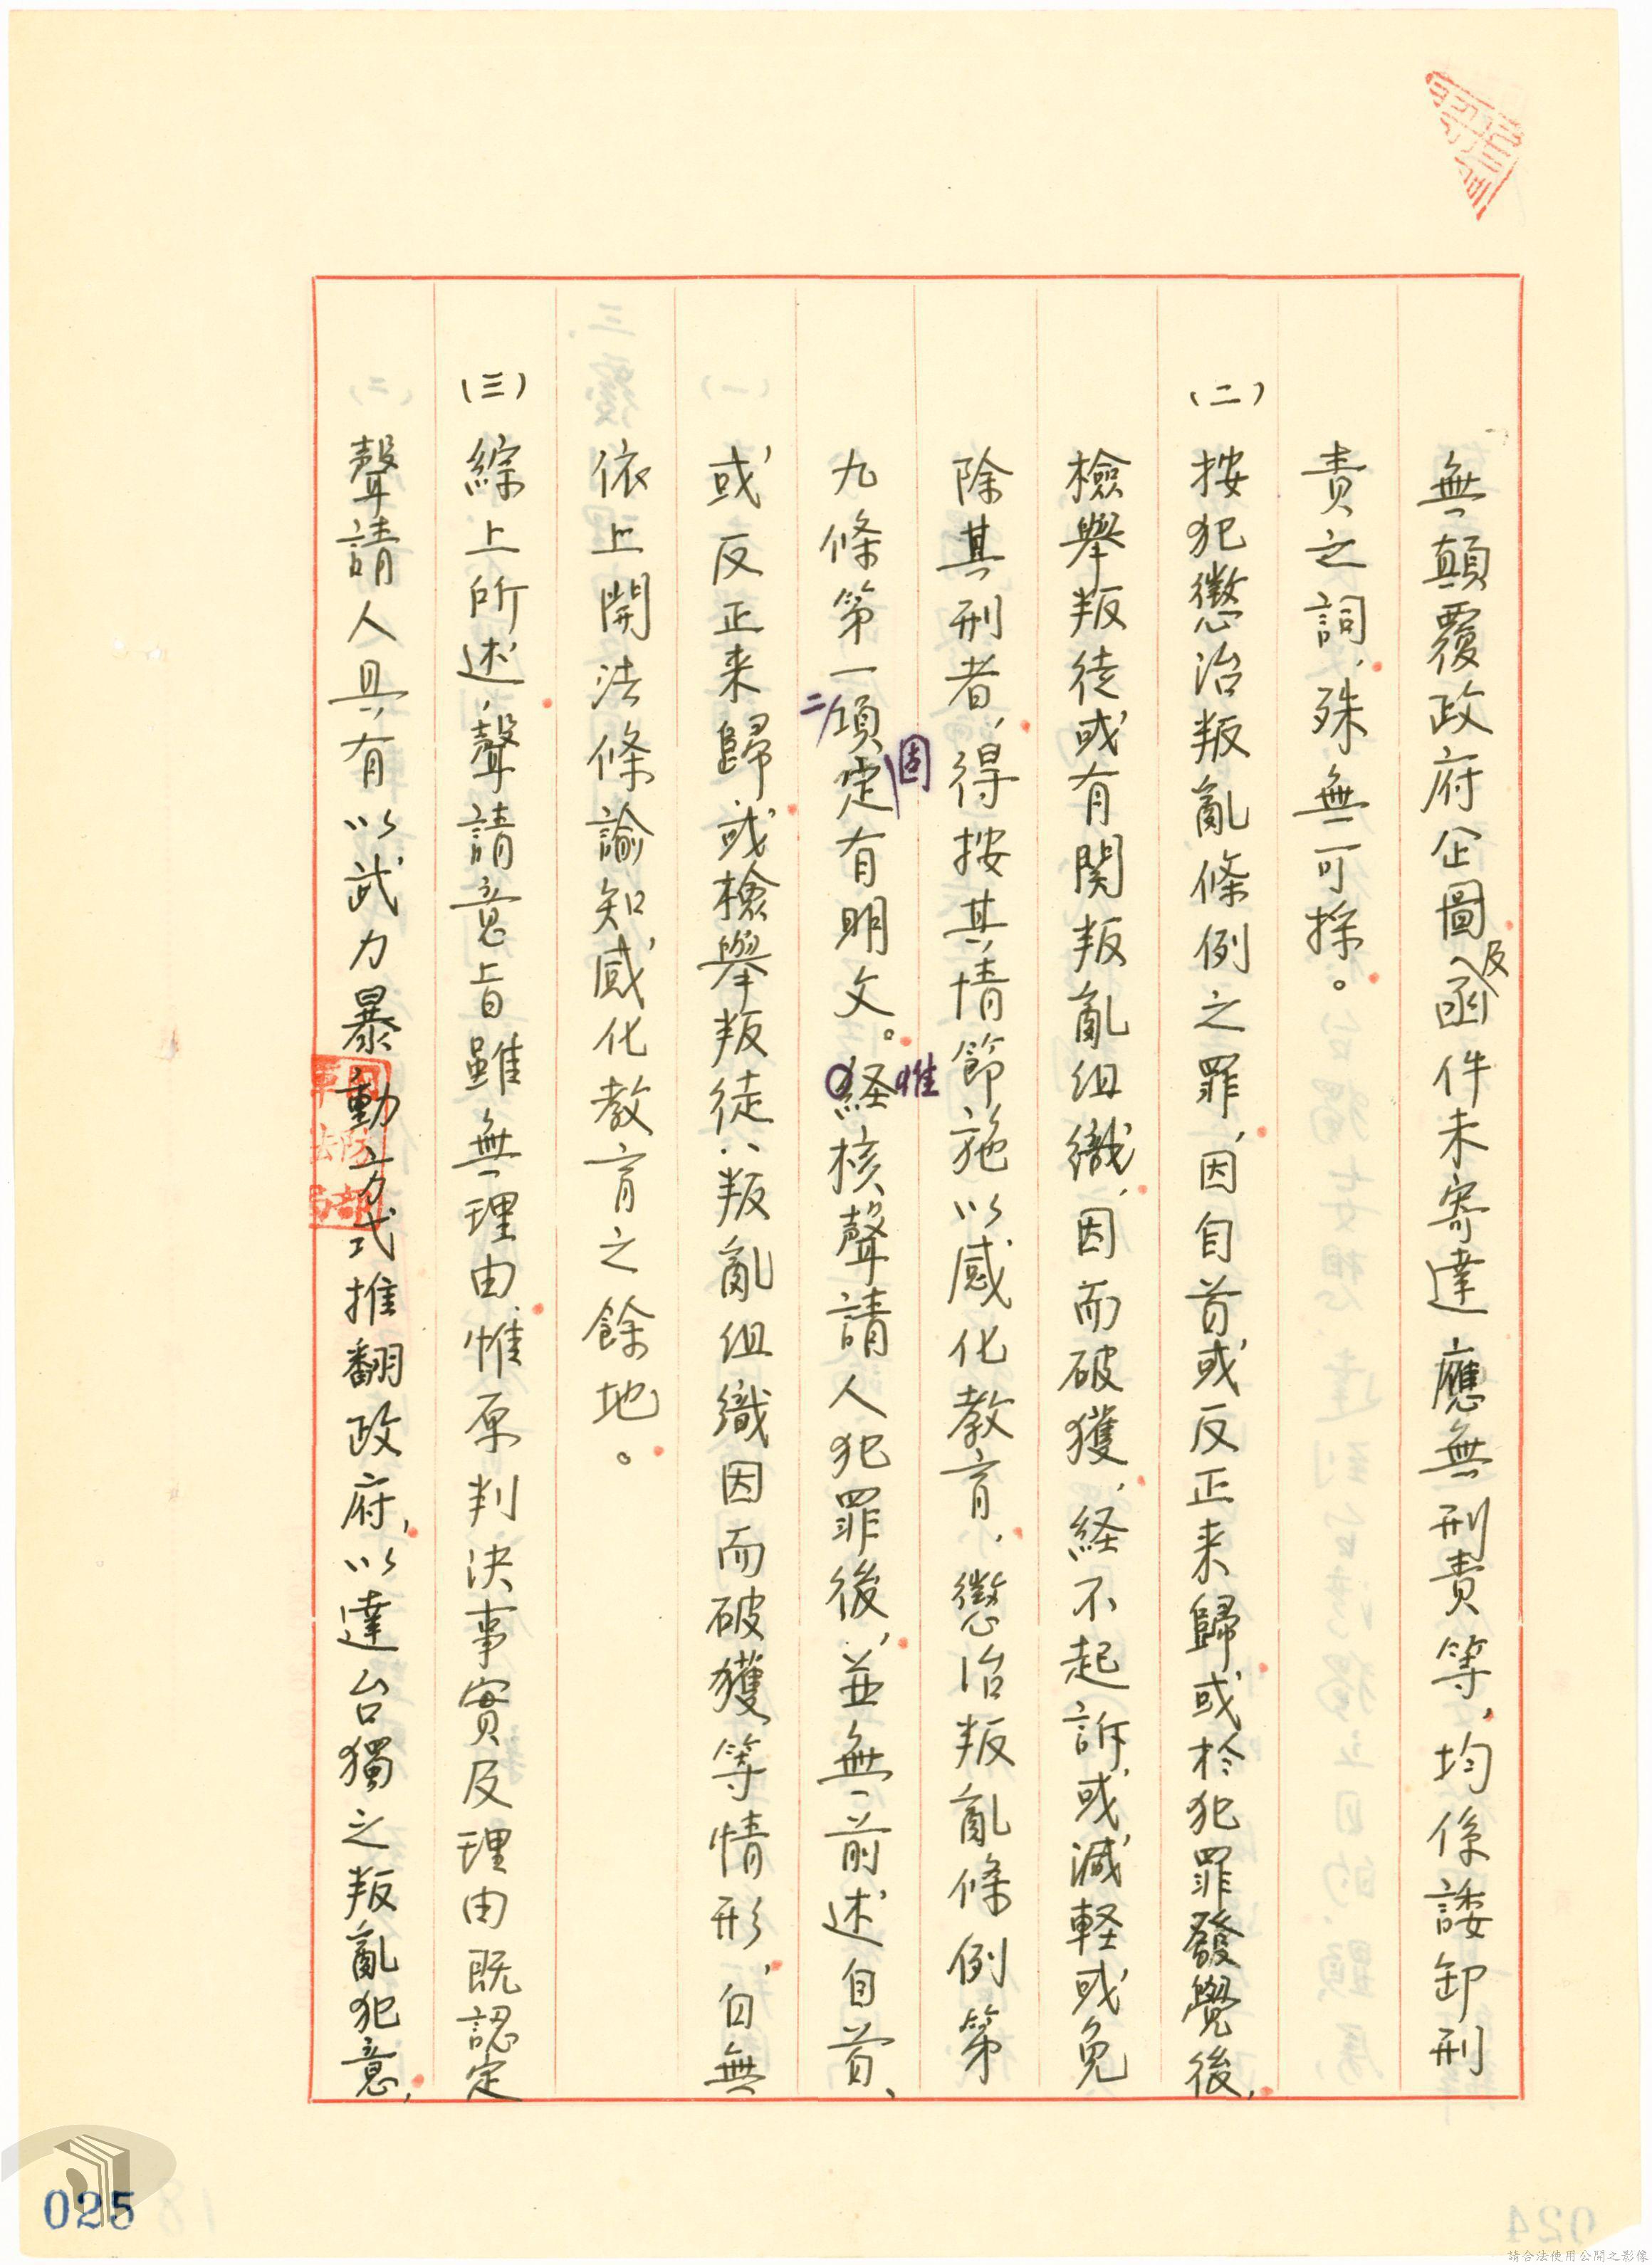 無顛覆政府企圖及函件未寄達應無刑責等，均係諉卸刑
責之詞，殊無可採。
(二)按犯懲治叛亂條例之罪，因自首或反正来歸或於犯罪發覺後，
檢舉叛徒或有関叛亂組織，因而破獲，経不起訴或減軽或免
除其刑者，得按其情節施以感化教育，懲治叛亂條例第
九條第一二項固定有明文。惟経核聲請人犯罪後，並無前述自首、
或反正来歸或檢舉叛徒、叛亂組織因而破獲等情形，自無
依上開法條諭知感化教育之餘地。
(三)綜上所述，聲請意旨雖無理由，惟原判決事實及理由既認定
聲請人具有以武力暴動方式推翻政府，以達台獨之叛亂犯意，
國防部
軍法局
025
024
請合法使用公開之影像